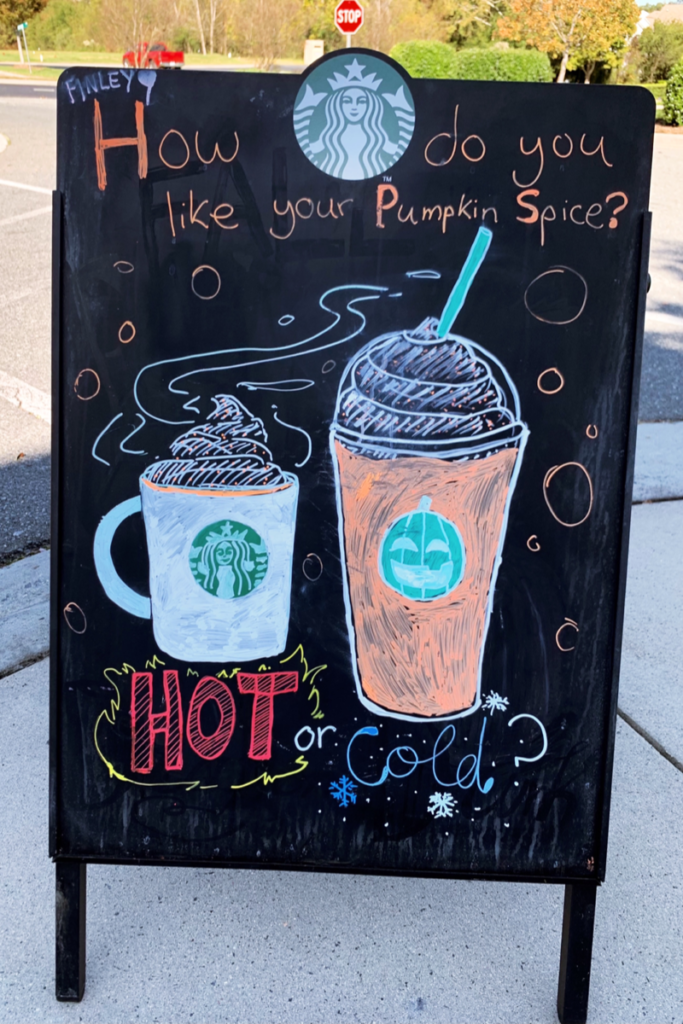 STOP
FINLEY
How do you
like your Pumpkin Spice?
HOT or Cold?